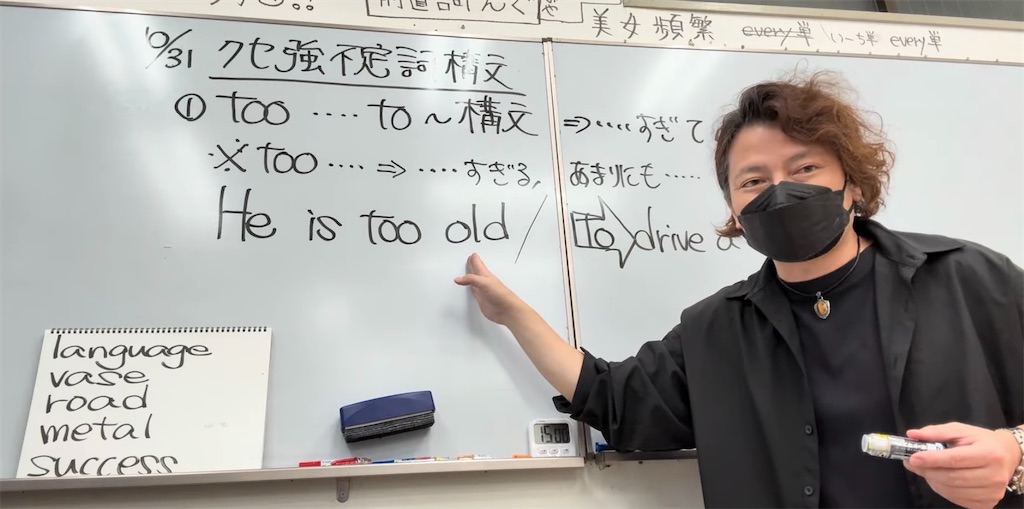 美女頻繁 every単 いーち単 every単
10/31 クセ強不定詞構文
① too ···· to ～構文 ⇒ ····すぎて
※ too ···· ⇒ ····すぎる, あまりにも ·····
He is too old / to drive a
language
vase
road
metal
success